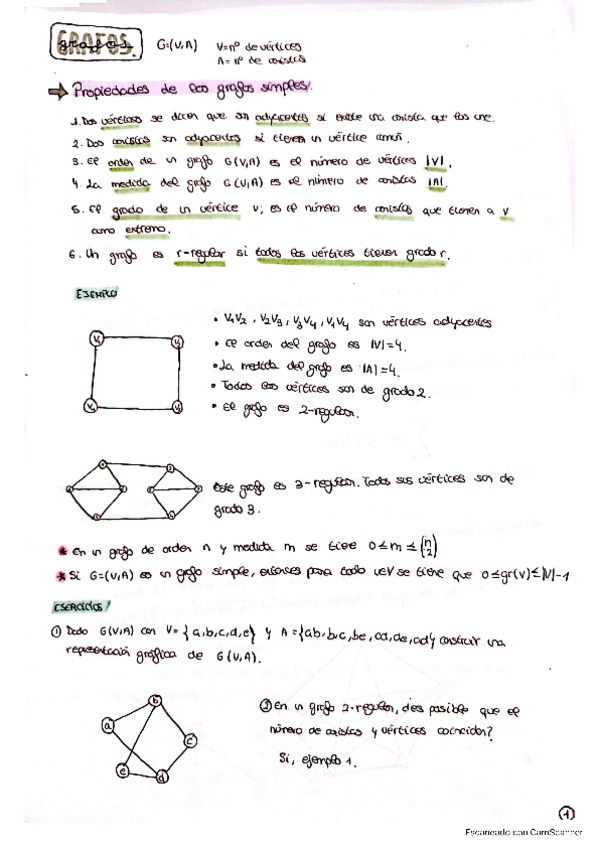 GRAFOS. G=(V,A) V=nº de vértices
A=nº de aristas
Propiedades de los grafos simples.
1. Dos vértices se dicen que son adyacentes si existe una arista que los une.
2. Dos aristas son adyacentes si tienen un vértice común.
3. El orden de un grafo G(V,A) es el número de vértices |V|.
4. La medida del grafo G(V,A) es el número de aristas |A|
5. El grado de un vértice v; es el número de aristas que tienen a v
como extremo.
6. Un grafo es r-regular si todos los vértices tienen grado r.
EJEMPLO
• V1V2, V2V3, V3V4, V1V4 son vértices adyacentes
• El orden del grafo es |V|=4.
• La medida del grafo es |A|=4.
• Todos los vértices son de grado 2.
• El grafo es 2-regular.
Este grafo es 3-regular. Todos sus vértices son de
grado 3.
* En un grafo de orden n y medida m se tiene 0≤m≤(n 2)
* Si G=(V,A) es un grafo simple, entonces para todo v∈V se tiene que 0≤gr(v)≤|V|-1
EJERCICIOS/
① Dado G(V,A) con V={a,b,c,d,e} y A={ab,bc,be,cd,de,ad} construir una
representación gráfica de G(V,A).
a b c d e
② En un grafo 2-regular, ¿es posible que el
número de aristas y vértices coincidan?
Si, ejemplo 1.
①
Escaneado con CamScanner